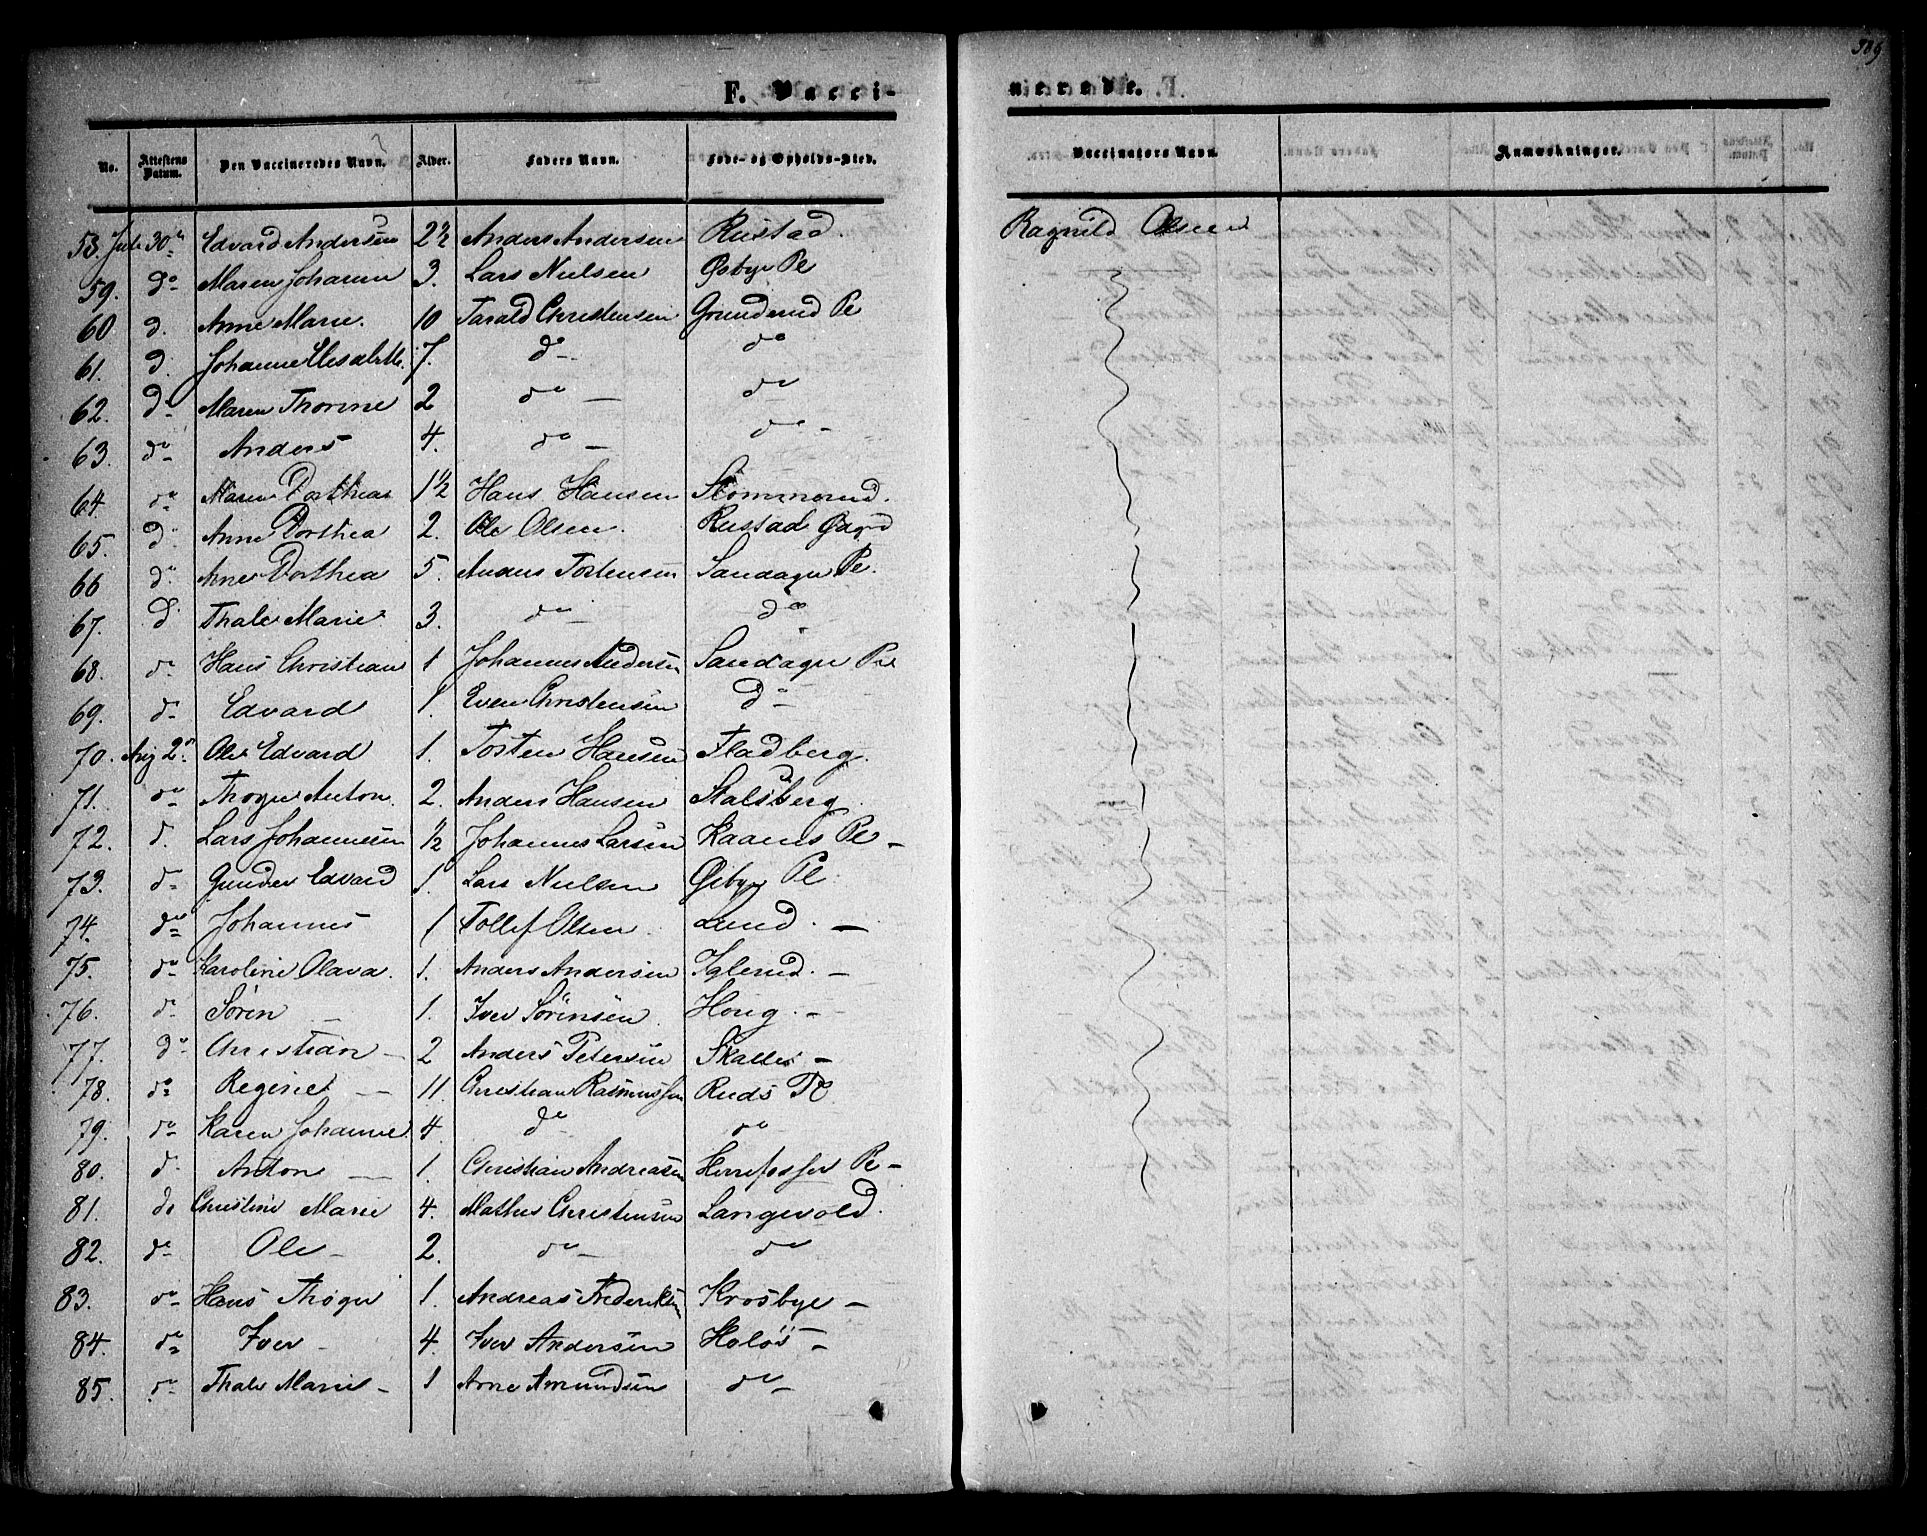 509
F. Vaccinerede.
No. Attestens Datum. Den Vaccineredes Navn. Alder. Faders Navn. Føde- og Opholds-Sted. Vaccinators Navn. Anmærkninger.
58. Juli 30te Edvard Andersen 2½ Anders Andersen Rustad. Ragnild Olsen
59. do Maren Johanne 3. Lars Nielsen Øsbye Pe
60 d. Anne Marie. 10 Tarald Christensen Grunderud Pe
61. d. Johanne Elisabeth. 7. do do
62. do Maren Thorine 2 do do
63. do Anders 4. do do
64. do Maren Dorthea 1½ Hans Hansen Stommerud.
65. do Anne Dorthea 2. Ole Olsen. Rustad
66 do Anne Dorthea 5. Anders Tostensen Sandager Pe.
67. d Thale Marie 3. do do
68. do Hans Christian 1 Johannes Andersen Sandager Pe
69. do Edvard 1. Even Christensen do
70. Aug 2n Ole Edvard 1. Tosten Hansen Fladberg.
71. do Thøger Anton. 2. Anders Hansen Stalsberg
72. d. Lars Johannesen ½ Johannes Larsen Kaaens Pe
73. do Gunder Edvard 1. Lars Nielsen Øsbye Pe
74. do Johannes 1 Tollef Olsen. Lund.
75. do Karoline Olava. 1. Anders Andersen Iglerud.
76. do Sørin 1. Iver Sørensen Houg.
77. do Christian 2 Anders Petersen
78. do Regine 11. Christian Rasmussen Ruds Pe
79. do Karen Johanne 4. do do
80. d. Anton 1. Christian Andreasen Herrefosser Pe
81. do Christine Marie 4. Mathis Christensen Langevold.
82. do Ole 2. do do
83. do Hans Thøger 1. Andreas Frederiksen Krosbye
84. do Iver 4. Iver Andersen Holøs
85. do Thale Marie 1 Arne Amundsen do